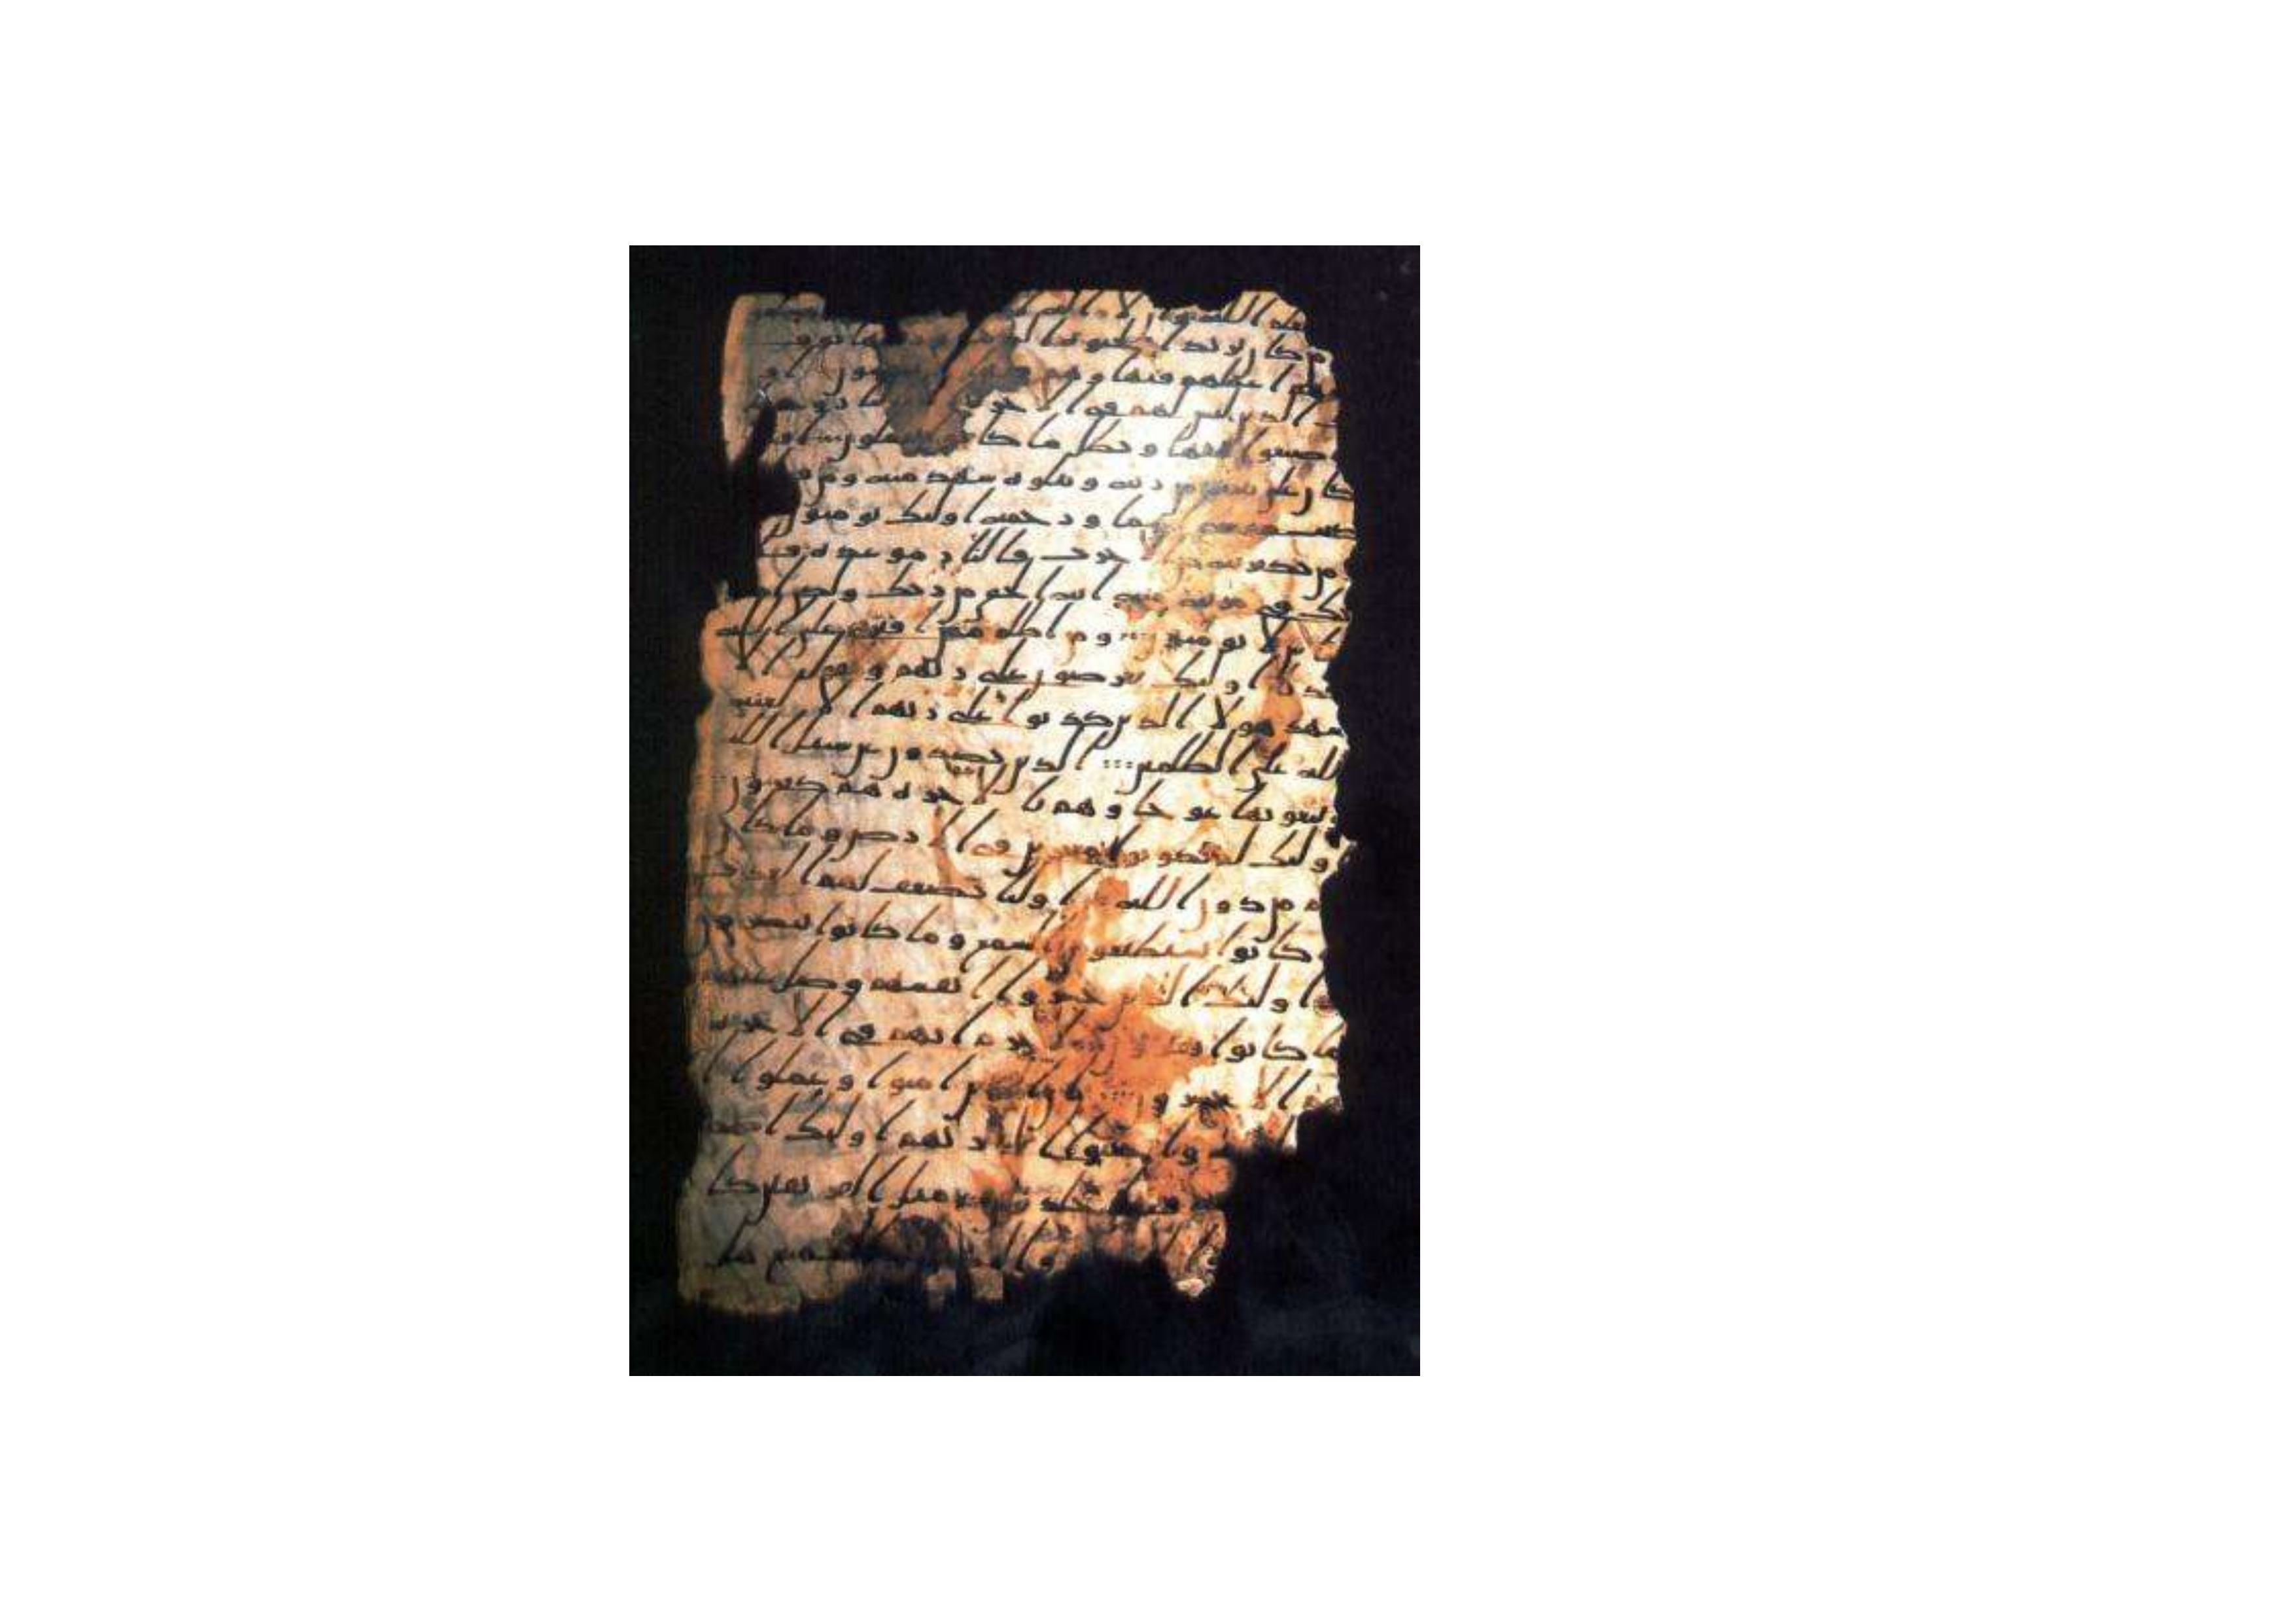 الله وا لا اله
من كان يريد الحيوة وزينتها نوف
اعملهم فيها وهم يبخسون او
الذين ليس لهم في الاخرة
صنعوا فيها وبطل ما كانوا يعملون
كان على بينة من ربه ويتلوه شهد منه ومن
كتب موسى اماما ورحمة اوليك يومنون
من يكفر به من الاحزب فالنار موعده فلا
تك في مرية منه انه الحق من ربك ولكن
الناس لا يومنون ومن اظلم ممن افترى على الله
كذبا اوليك يعرضون على ربهم ويقول الا
شهد هولا الذين كذبوا على ربهم الا لعنة
الله على الظلمين الذين يصدون عن سبيل الله
ويبغونها عوجا وهم بالاخرة هم كفرون
اوليك لم يكونوا معجزين في الارض وما كان
لهم من دون الله من اوليا يضعف لهم العذب
ما كانوا يستطيعون السمع وما كانوا يبصرون
اوليك الذين خسروا انفسهم وضل عنهم
ما كانوا يفترون لا جرم انهم في الاخرة
هم الاخسرون ان الذين امنوا وعملوا ا
واخبتوا الى ربهم اوليك اصحب
فيها خلدون مثل الفريقين كا
والسميع هل